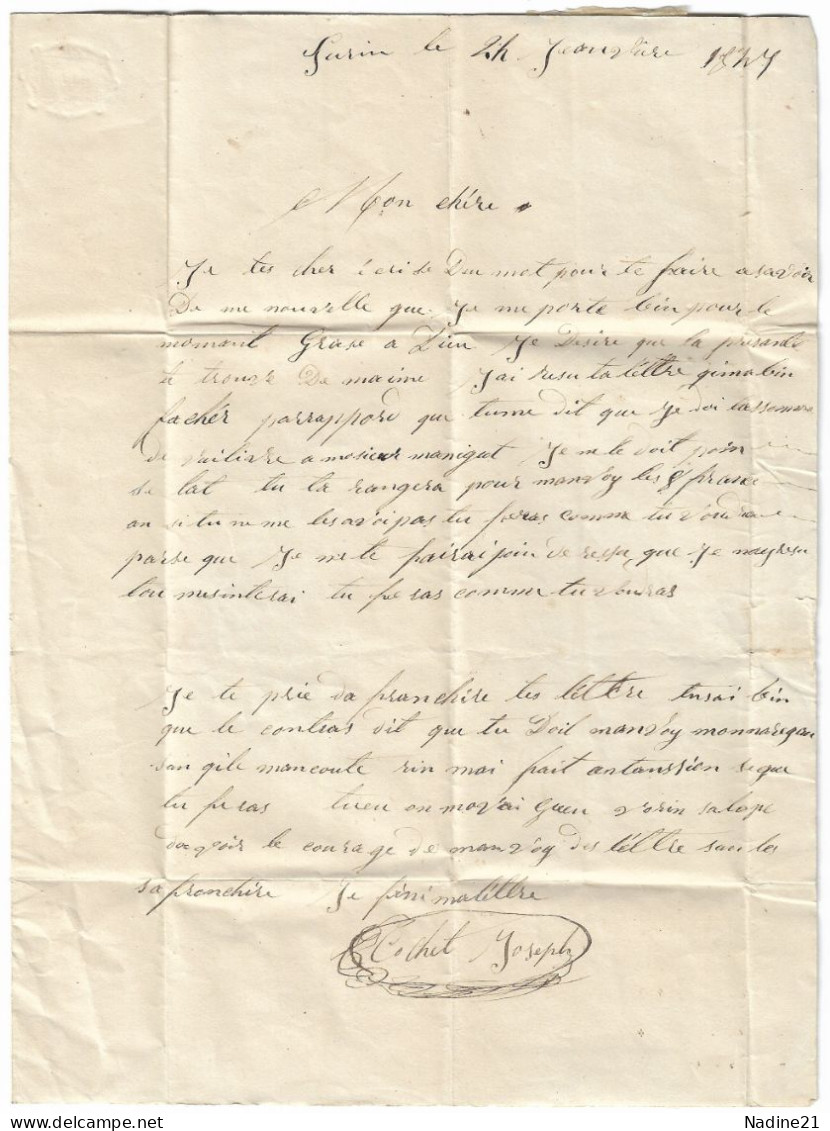 le 24 Jeanvière 1847
Mon chère
Je tes cher cri se Deu mot pour te faire a savoir
De me nouvelle que Je me porte bin pour le
momant Grase a Dieu Je Desire que la présante
te trouve De maime Jai resu ta lèttre qi ma bin
facher parrappord que tu me dit que Je doi la somme
de a mosieur manigat Je ne le doit poin
se lat tu ta rangera pour manvoy les franc
ou si tu ne me les avoi pas tu feras comme tu voudra
parse que Je ne te fairai poin de resu que Je nay resu
tou mes intesai tu feras comme tu vouras
Je te prie da franchire tes lèttre tu sai bin
que le contras dit que tu Doit manvoy monnaregan
san qi le man coute rin mai fait antanssion se que
tu feras tu eu on movai Gueu vorin salope
davoir le courage de manvoy des lèttre san les
sa franchire Je fini ma lèttre
Cochet Joseph
Nadine21